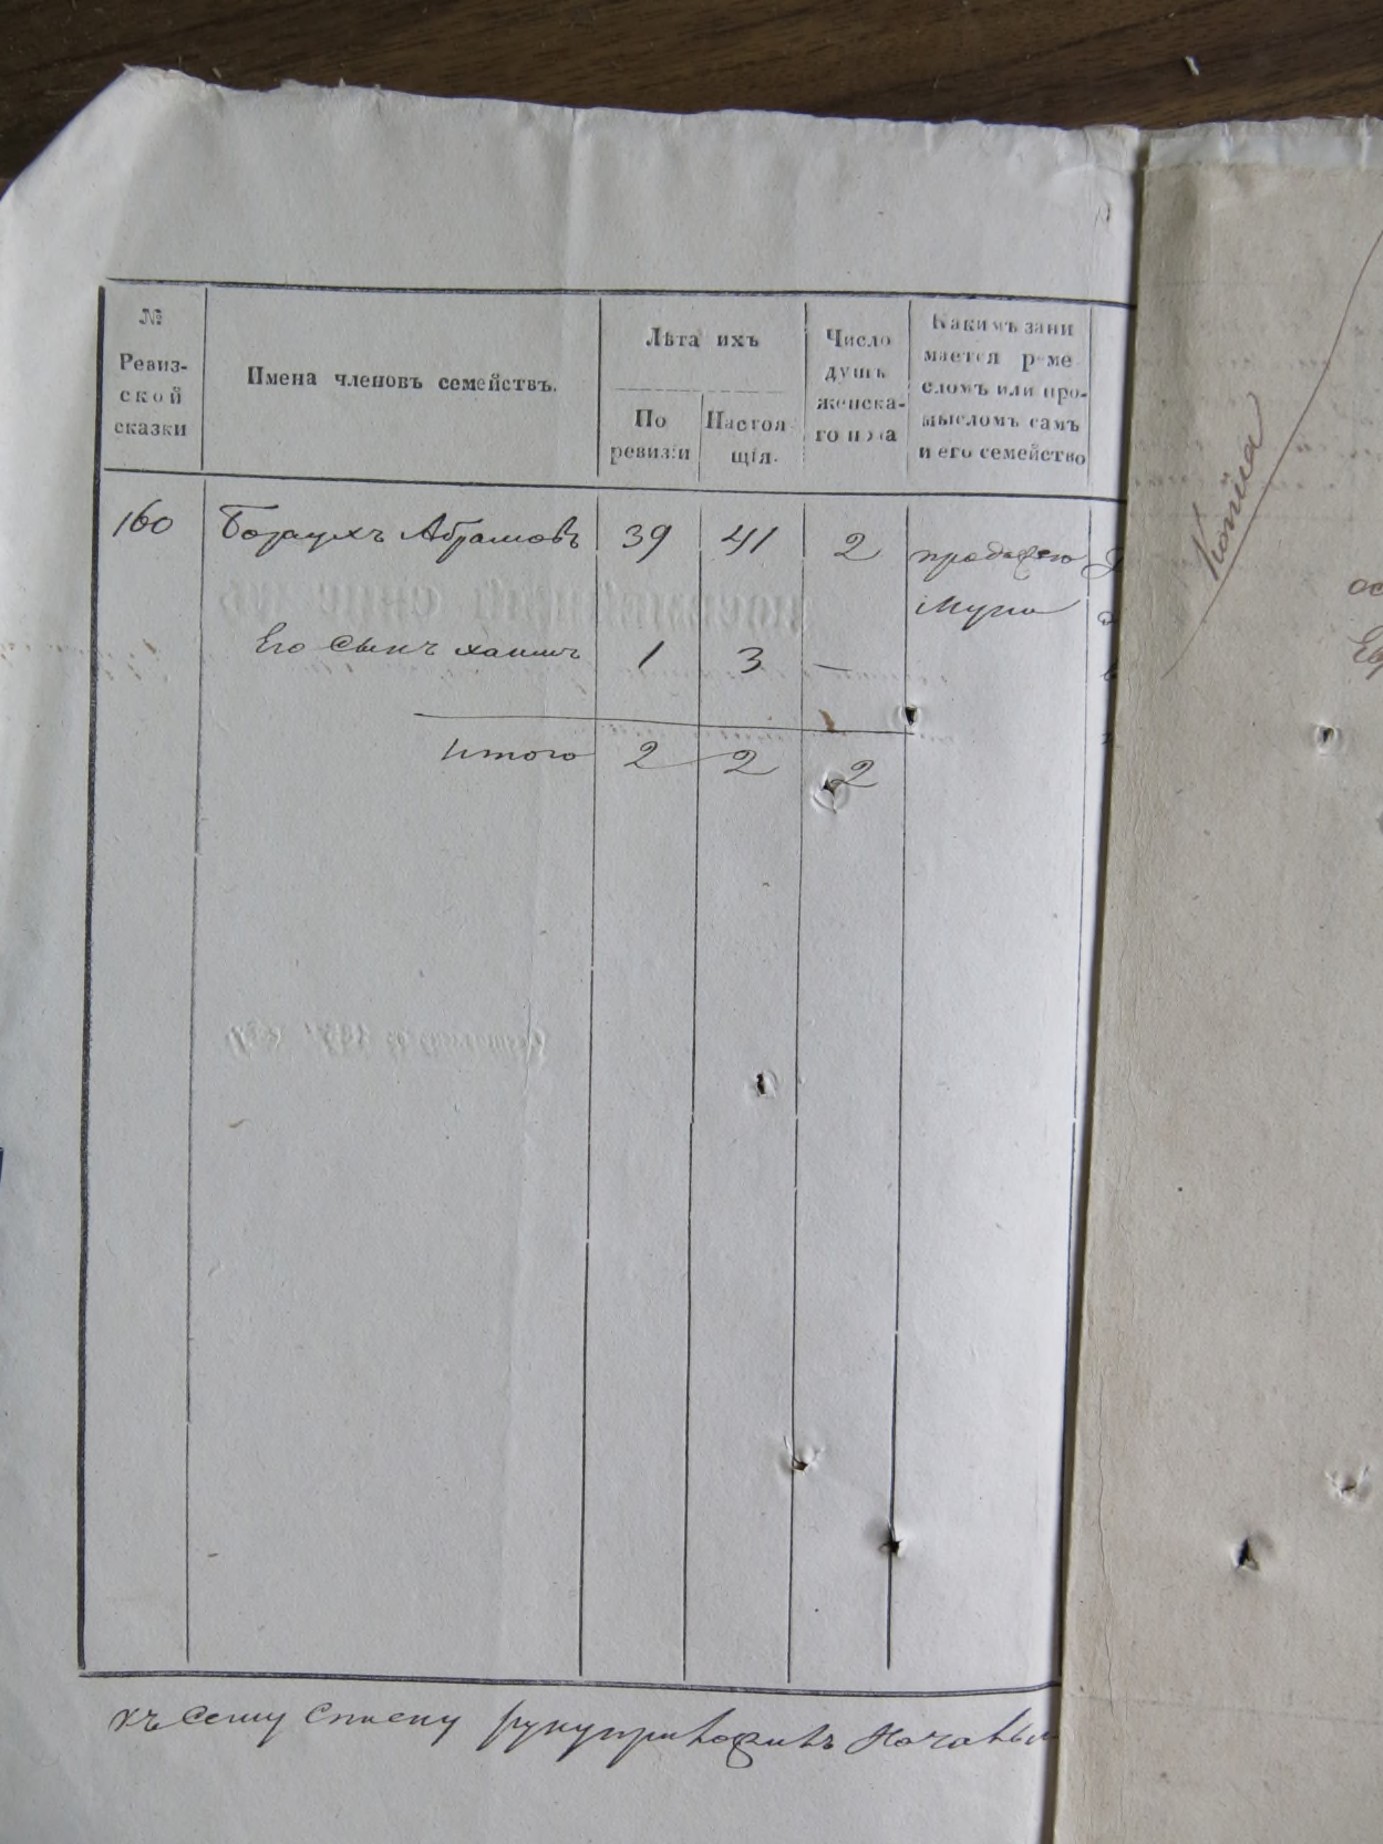 №
Ревиз-
ской
сказки
Имена членовъ семействъ.
Лѣта ихъ
По
ревизіи
Настоя
щія.
Число
душъ
женска-
го пола
Какимъ зани
мается реме
сломъ или про-
мысломъ самъ
и его семейство
160 Борухъ Абрамовъ 39 41 2 продажею
муки
Его сынъ хаимъ 1 3 —
Итого 2 2 2
къ сему списку
Копїа
ос
Ев